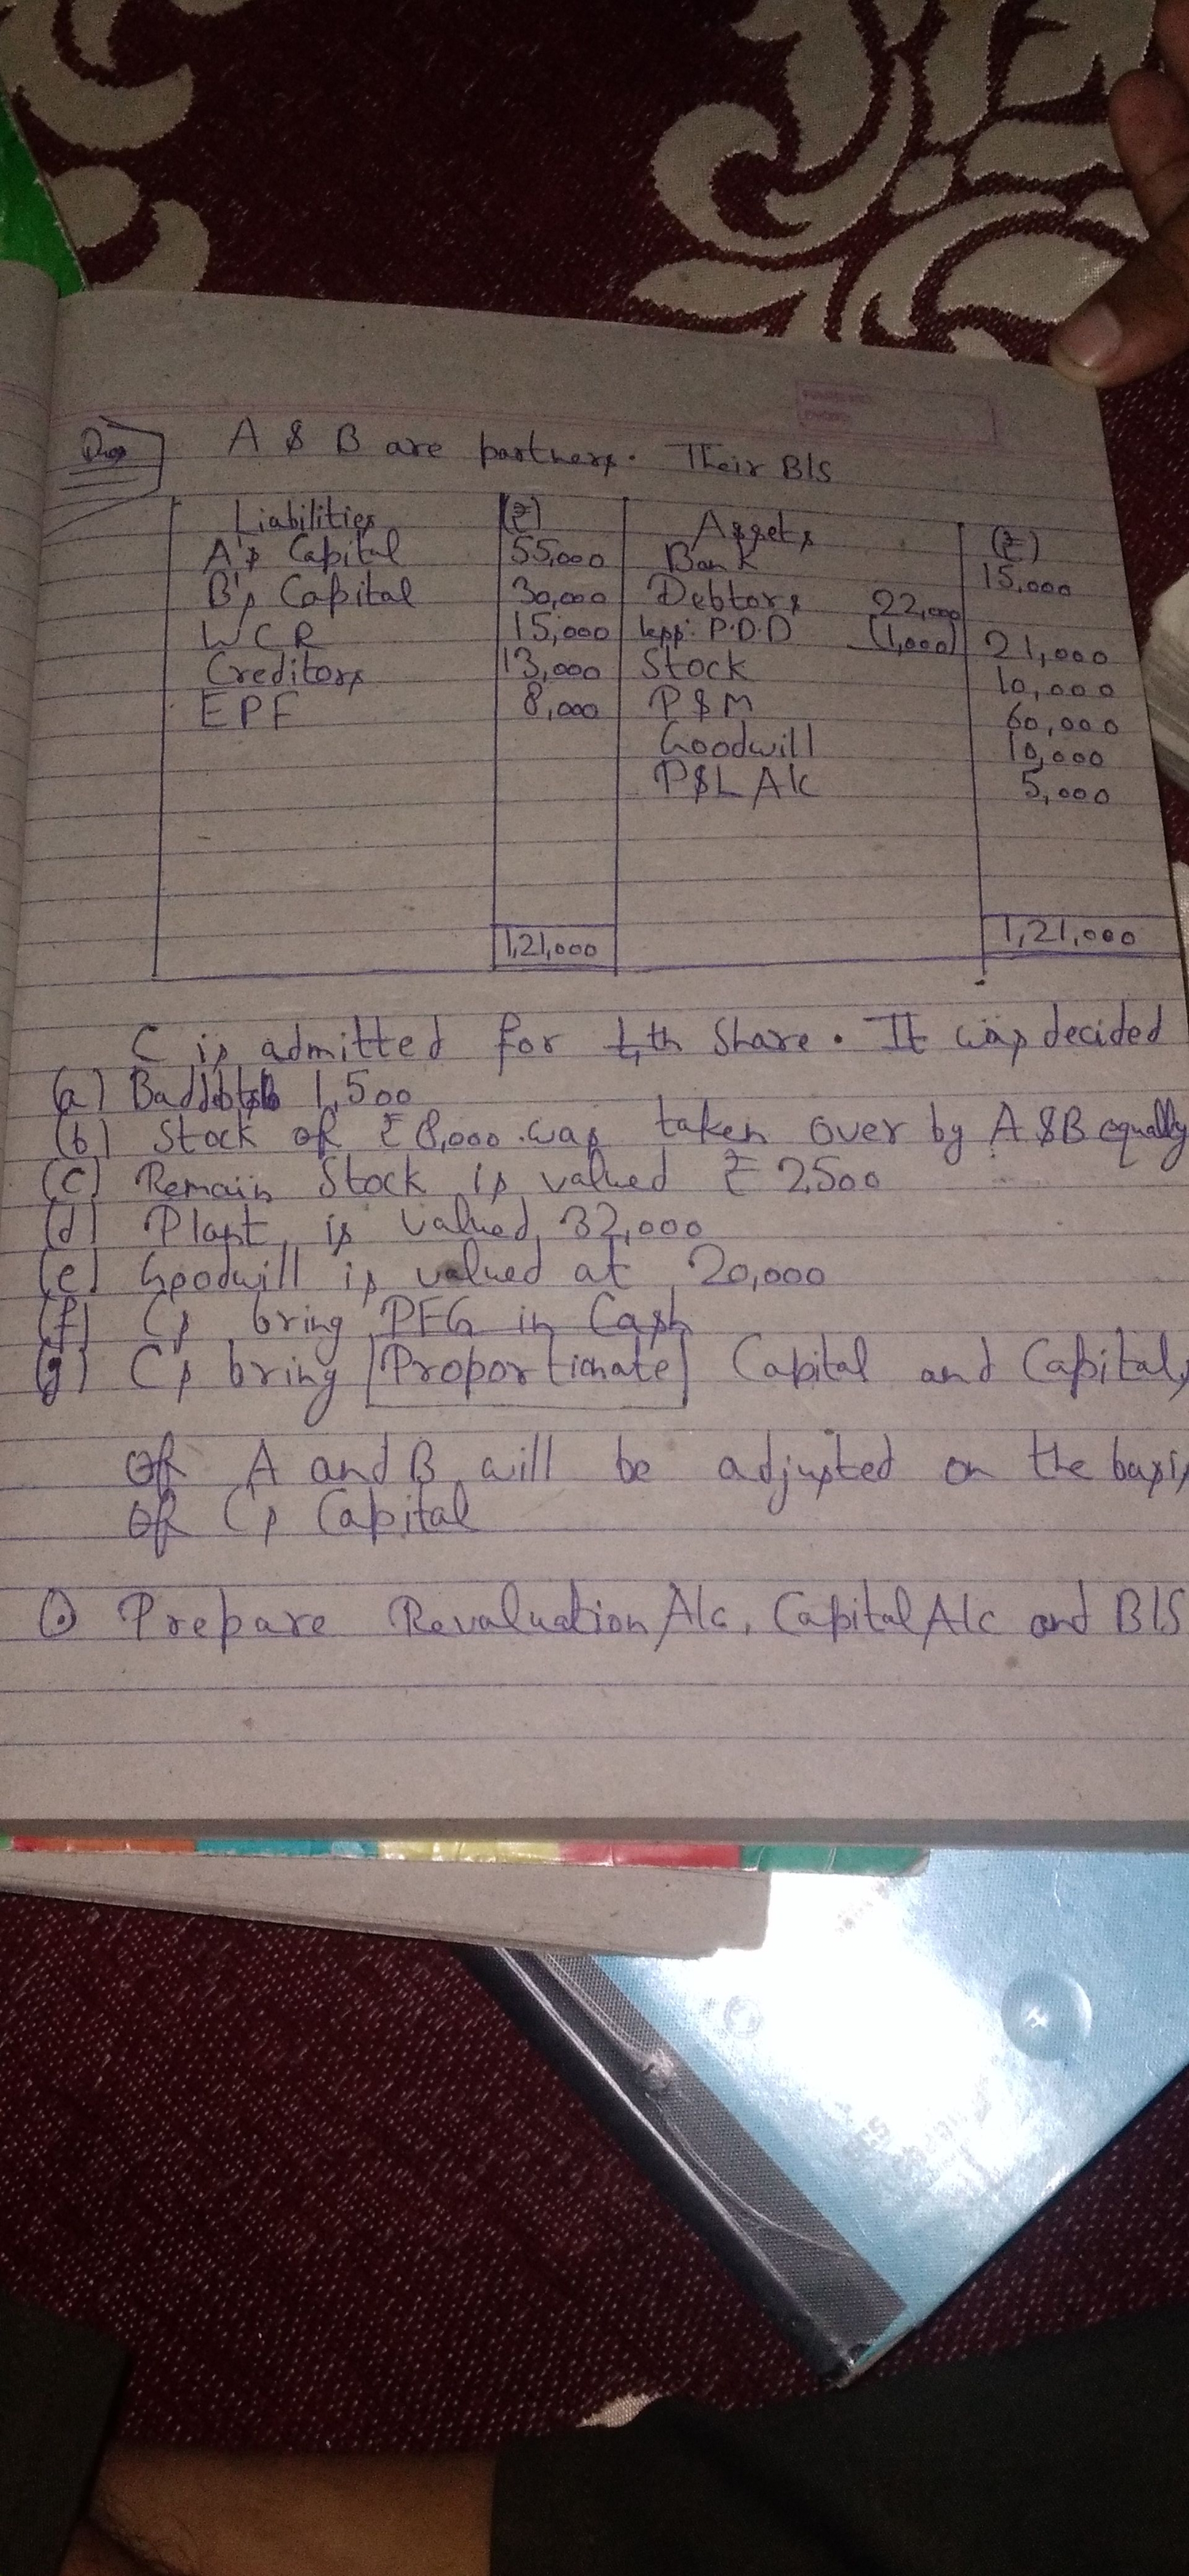 Ques A & B are partners. Their B/S
Liabilities (₹) Assets (₹)
A's Capital 55,000 Bank 15,000
B's Capital 30,000 Debtors 22,000
WCR 15,000 less: P.D.D (1,000) 21,000
Creditors 13,000 Stock 10,000
EPF 8,000 P&M 60,000
Goodwill 10,000
P&L A/c 5,000
1,21,000 1,21,000
C is admitted for th Share. It was decided
(a) Baddebts 1,500
(b) Stock of ₹ 8,000 was taken over by A & B equally
(c) Remain Stock is valued ₹ 2500
(d) Plant is valued 32,000
(e) Goodwill is valued at 20,000
(f) Cs bring PFG in Cash
(g) Cs bring Proportionate Capital and Capitals
of A and B will be adjusted on the basis
of Cs Capital
Prepare Revaluation A/c, Capital A/c and B/S